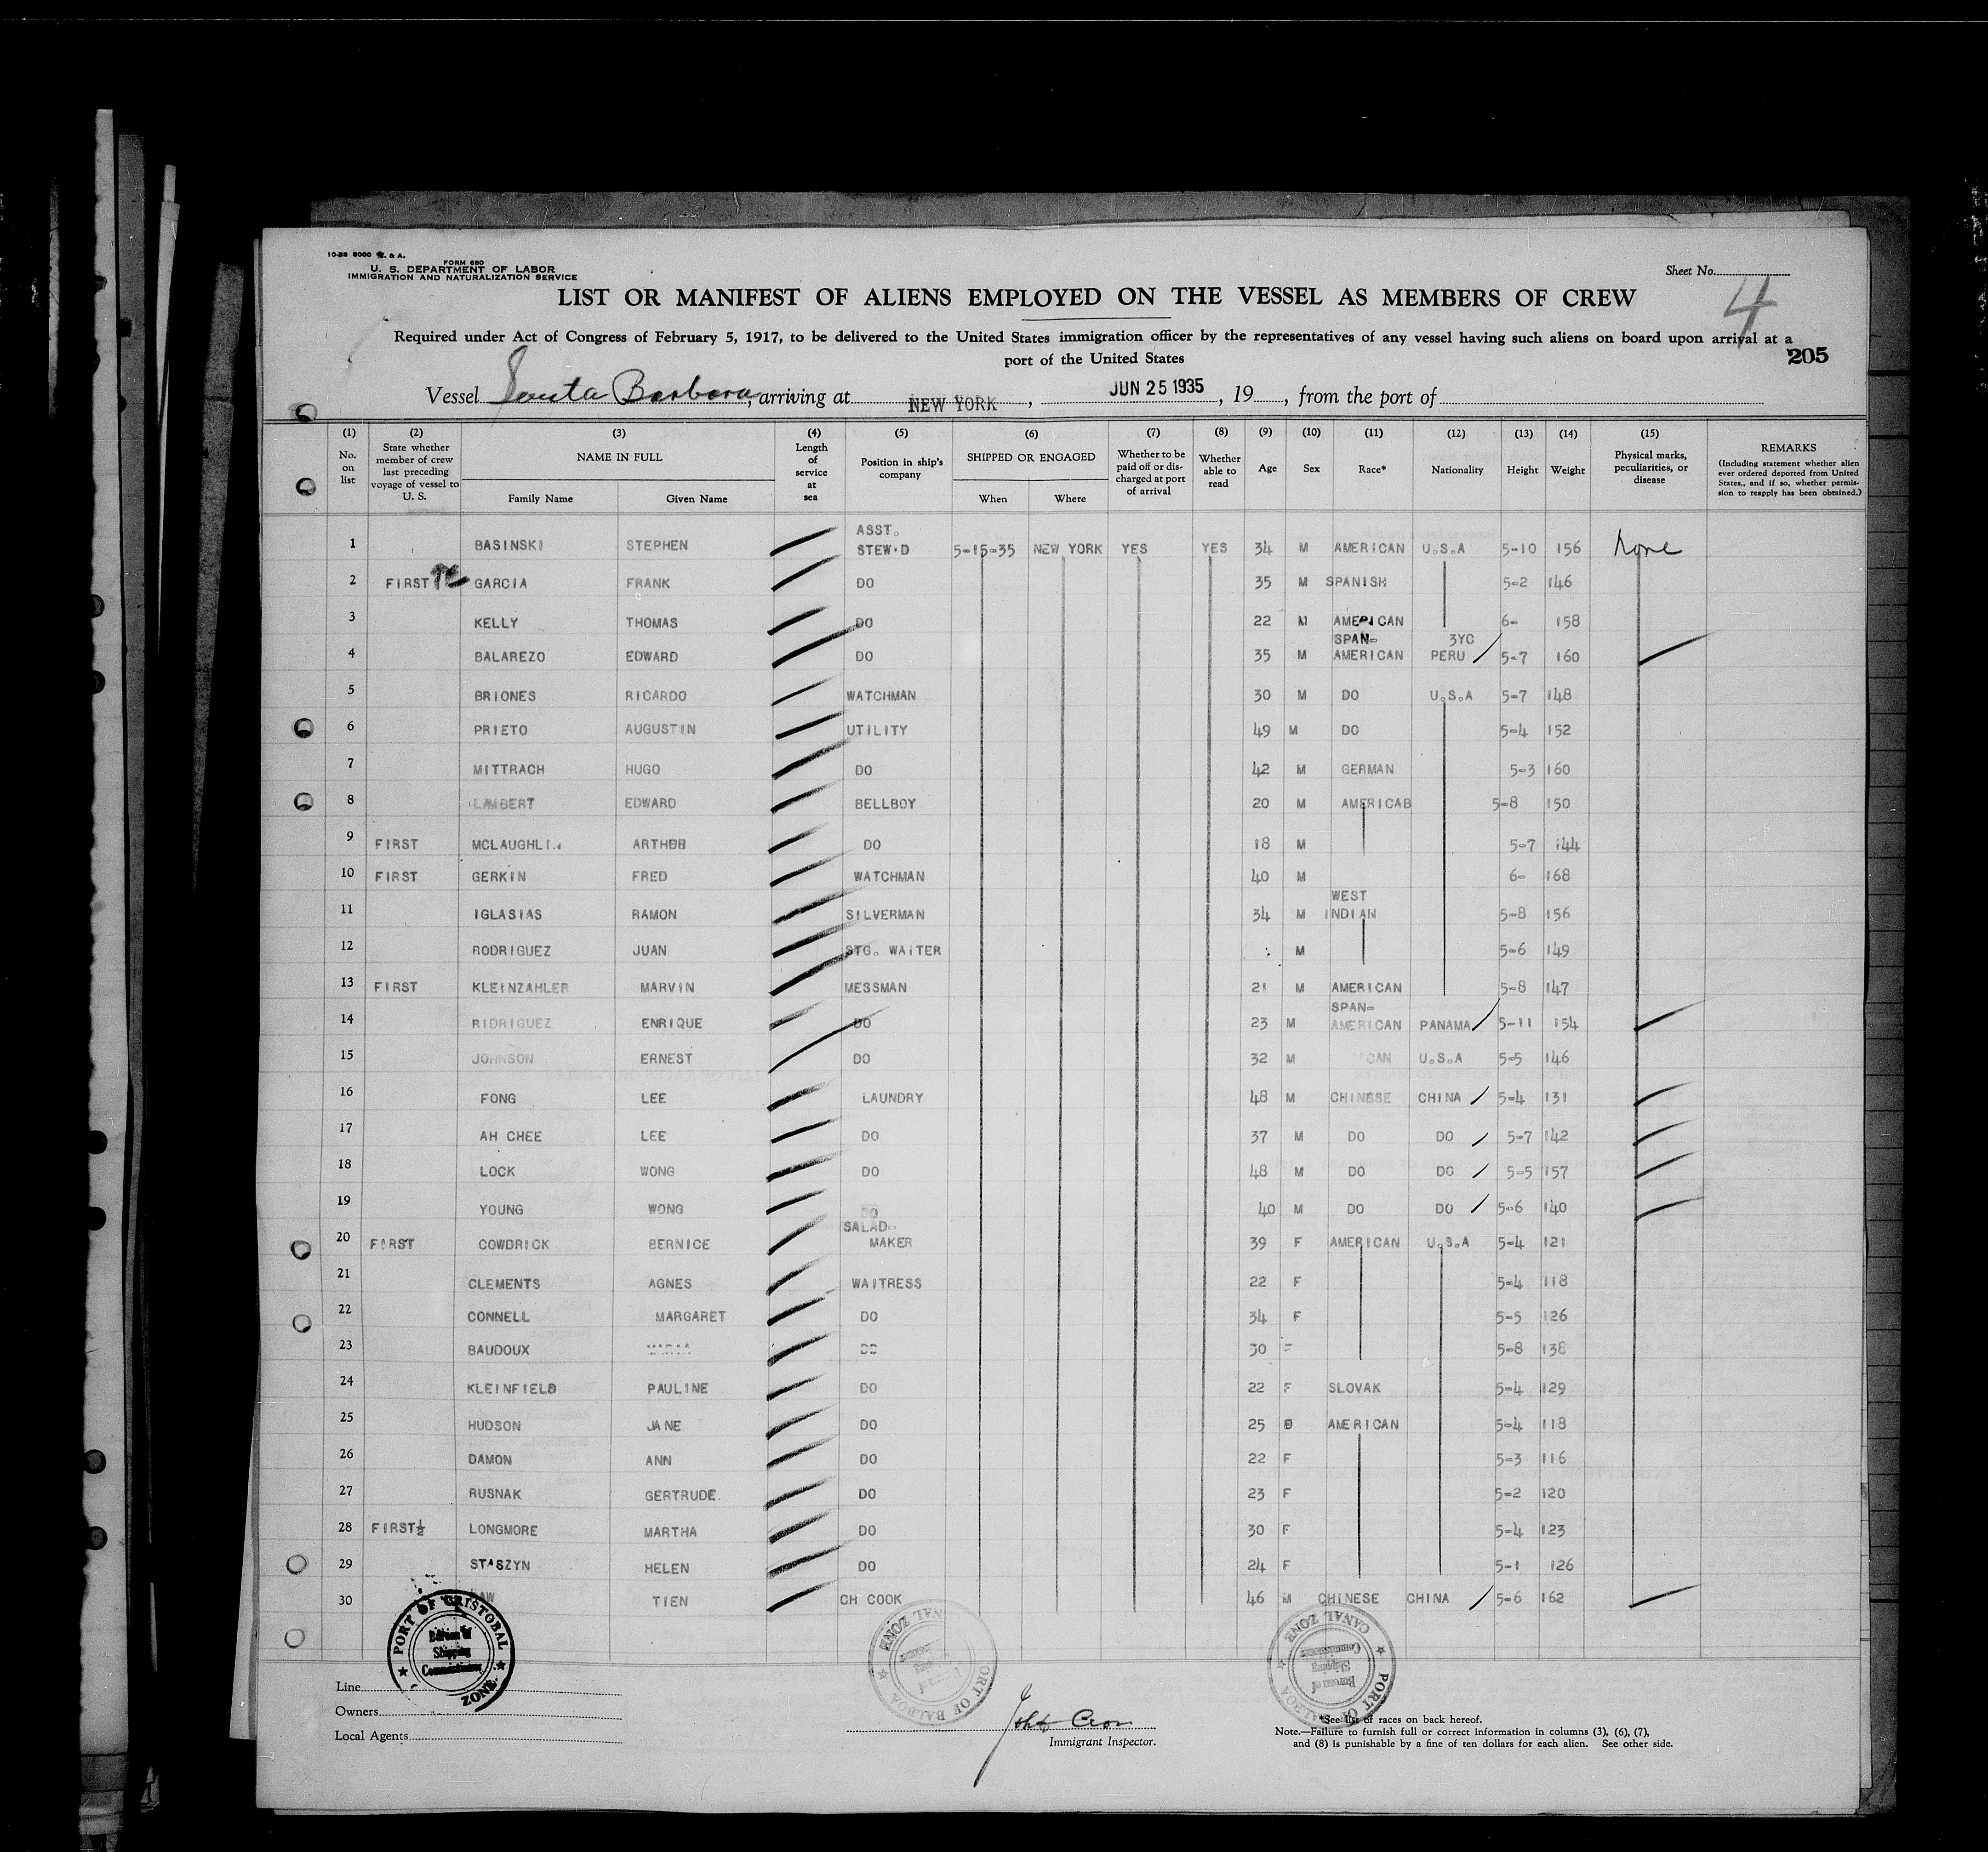 10-33 5000 W. & A.
FORM 680
U. S. DEPARTMENT OF LABOR
IMMIGRATION AND NATURALIZATION SERVICE
Sheet No.
4
LIST OR MANIFEST OF ALIENS EMPLOYED ON THE VESSEL AS MEMBERS OF CREW
Required under Act of Congress of February 5, 1917, to be delivered to the United States immigration officer by the representatives of any vessel having such aliens on board upon arrival at a
port of the United States
205
Vessel Santa Barbara, arriving at NEW YORK, JUN 25 1935, 19, from the port of
(1) (2) (3) (4) (5) (6) (7) (8) (9) (10) (11) (12) (13) (14) (15)
No. on list
State whether member of crew last preceding voyage of vessel to U. S.
NAME IN FULL
Family Name Given Name
Length of service at sea
Position in ship's company
SHIPPED OR ENGAGED
When Where
Whether to be paid off or discharged at port of arrival
Whether able to read
Age Sex Race* Nationality Height Weight
Physical marks, peculiarities, or disease
REMARKS
(Including statement whether alien ever ordered deported from United States, and if so, whether permission to reapply has been obtained.)
1 BASINSKI STEPHEN ASST. STEW.D 5-15-35 NEW YORK YES YES 34 M AMERICAN U.S.A 5-10 156 None
2 FIRST GARCIA FRANK DO 35 M SPANISH 5-2 146
3 KELLY THOMAS DO 22 M AMERICAN 6- 158
4 BALAREZO EDWARD DO 35 M SPAN-AMERICAN 3YC PERU 5-7 160
5 BRIONES RICARDO WATCHMAN 30 M DO U.S.A 5-7 148
6 PRIETO AUGUSTIN UTILITY 49 M DO 5-4 152
7 MITTRACH HUGO DO 42 M GERMAN 5-3 160
8 LAMBERT EDWARD BELLBOY 20 M AMERICAB 5-8 150
9 FIRST MCLAUGHLIN ARTHUR DO 18 M 5-7 144
10 FIRST GERKIN FRED WATCHMAN 40 M 6- 168
11 IGLASIAS RAMON SILVERMAN 34 M WEST INDIAN 5-8 156
12 RODRIGUEZ JUAN STG. WAITER M 5-6 149
13 FIRST KLEINZAHLER MARVIN MESSMAN 21 M AMERICAN 5-8 147
14 RIDRIGUEZ ENRIQUE DO 23 M SPAN-AMERICAN PANAMA 5-11 154
15 JOHNSON ERNEST DO 32 M U.S.A 5-5 146
16 FONG LEE LAUNDRY 48 M CHINESE CHINA 5-4 131
17 AH CHEE LEE DO 37 M DO DO 5-7 142
18 LOCK WONG DO 48 M DO DO 5-5 157
19 YOUNG WONG DO 40 M DO DO 5-6 140
20 FIRST COWDRICK BERNICE SALAD- MAKER 39 F AMERICAN U.S.A 5-4 121
21 CLEMENTS AGNES WAITRESS 22 F 5-4 118
22 CONNELL MARGARET DO 34 F 5-5 126
23 BAUDOUX DO 30 F 5-8 138
24 KLEINFIELD PAULINE DO 22 F SLOVAK 5-4 129
25 HUDSON JANE DO 25 AMERICAN 5-4 118
26 DAMON ANN DO 22 F 5-3 116
27 RUSNAK GERTRUDE DO 23 F 5-2 120
28 FIRST½ LONGMORE MARTHA DO 30 F 5-4 123
29 STASZYN HELEN DO 24 F 5-1 126
30 TIEN CH COOK 46 M CHINESE CHINA 5-6 162
PORT OF CRISTOBAL ZONE
Bureau of Shipping Commissioning
PORT OF BALBOA CANAL ZONE
PORT OF BALBOA CANAL ZONE
Bureau of Shipping Commissioner
Line
Owners
Local Agents
Immigrant Inspector.
*See list of races on back hereof.
Note.—Failure to furnish full or correct information in columns (3), (6), (7),
and (8) is punishable by a fine of ten dollars for each alien. See other side.